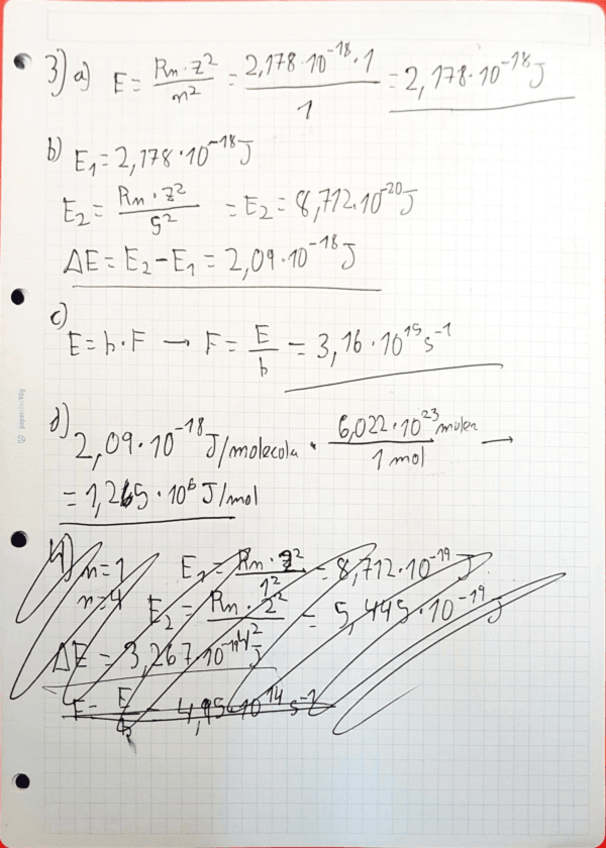 3) a) E = Rn·z²/n² = 2,178·10⁻¹⁸·1/1 = 2,178·10⁻¹⁸ J
b) E₁ = 2,178·10⁻¹⁸ J
E₂ = Rn·z²/5² = E₂ = 8,712·10⁻²⁰ J
ΔE = E₂ - E₁ = 2,09·10⁻¹⁸ J
c)
E = h·F → F = E/h = 3,16·10¹⁵ s⁻¹
d) 2,09·10⁻¹⁸ J/molecola · 6,022·10²³ molec/1 mol →
= 1,265·10⁶ J/mol
4) n=1 E₁ = Rn·z²/1² = 8,712·10⁻¹⁹ J
n=4 E₂ = Rn·2²/4² = 5,445·10⁻¹⁹ J
ΔE = 3,267·10⁻¹⁹ J
F = E/h = 4,95·10¹⁴ s⁻¹